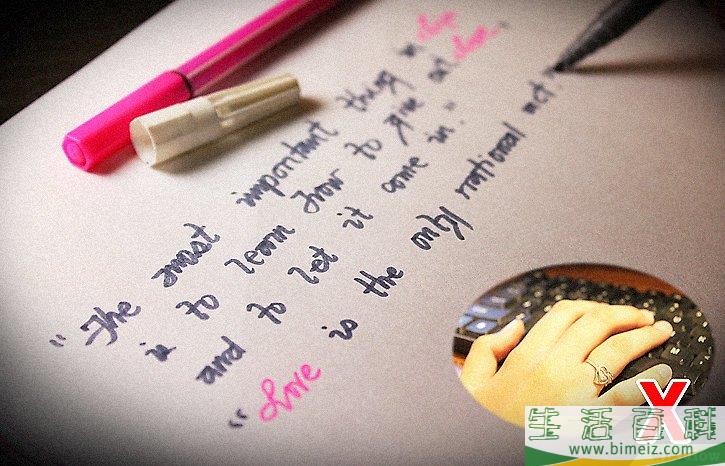 "The most important thing in life
is to learn how to give out love,
and to let it come in."
"Love is the only rational act."
X
生活百科
www.bimeiz.com